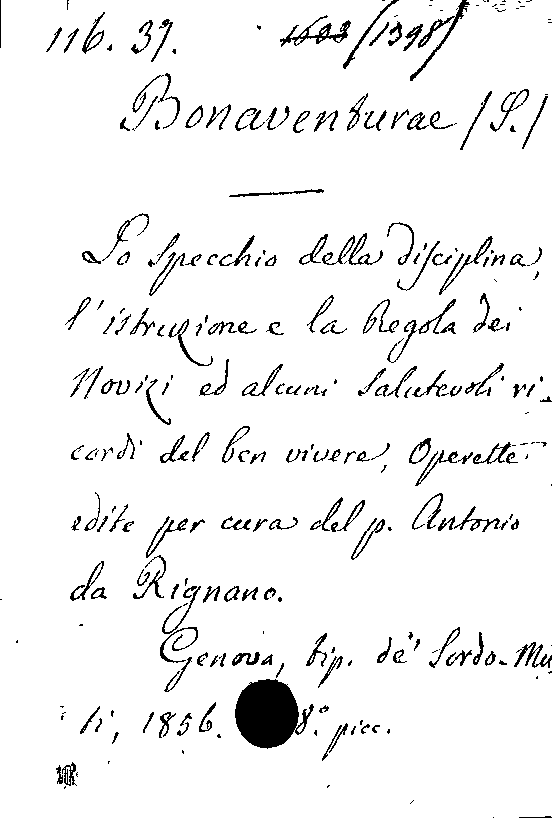 116. 39. 1603 (1398)
Bonaventurae (S.)
Lo specchio della disciplina,
l'istruzione e la Regola dei
Novizi ed alcuni salutevoli ri-
cordi del ben vivere, Operette
edite per cura del p. Antonio
da Rignano.
Genova, tip. de' Sordo-Mu
ti, 1856. 8.° picc.